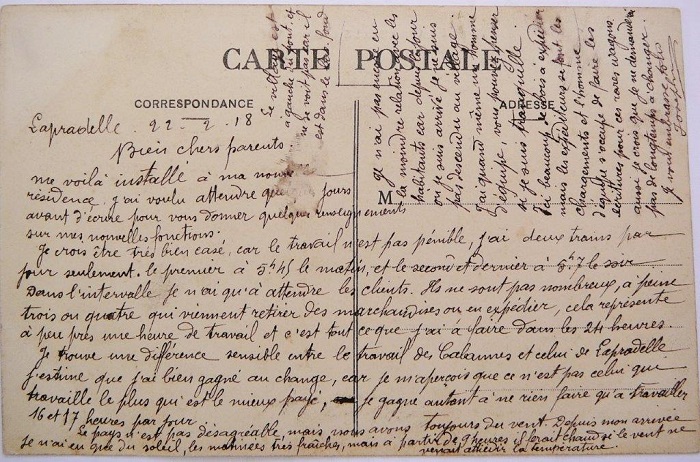 CARTE POSTALE
CORRESPONDANCE
ADRESSE
M
Lapradelle. 22-2.18
Bien chers parents
me voilà installé à ma nouvelle
résidence. j'ai voulu attendre quelques jours
avant d'écrire pour vous donner quelques renseignements
sur mes nouvelles fonctions.
Je crois être très bien casé, car le travail n'est pas pénible, j'ai deux trains par
jour seulement. le premier à 5h45 le matin, et le second et dernier à 5h7 le soir
Dans l'intervalle je n'ai qu'à attendre les clients. Ils ne sont pas nombreux, à peine
trois ou quatre qui viennent retirer des marchandises ou en expédier, cela représente
à peu près une heure de travail et c'est tout ce que j'ai à faire dans les 24 heures.
Je trouve une différence sensible entre le travail des Cabannes et celui de Lapradelle
j'estime que j'ai bien gagné au change, car je m'aperçois que ce n'est pas celui qui
travaille le plus qui est le mieux payé, je gagne autant à ne rien faire qu'à travailler
16 et 17 heures par jour.
Le pays n'est pas désagréable mais nous avons toujours du vent. Depuis mon arrivée
je n'ai eu que du soleil, les matinées très fraîches, mais à partir de 9 heures il ferait chaud si le vent ne
venait adoucir la température.
Le village est
à gauche du pont, et
ne se voit pas car il
est dans le bas fond
Je n'ai pas encore eu
la moindre relation avec les
habitants car depuis le jour
où je suis arrivé je ne suis
pas descendu au village.
J'ai quand même un homme
d'équipe, vous pouvez penser
si je suis tranquille
J'ai beaucoup de bois à expédier
mais les expéditeurs se font les
chargements et l'homme
d'équipe s'occupe de faire les
écritures pour ces rares wagons,
aussi je crois que je ne demanderai
pas de longtemps à changer.
Je vous embrasse fort
Joseph